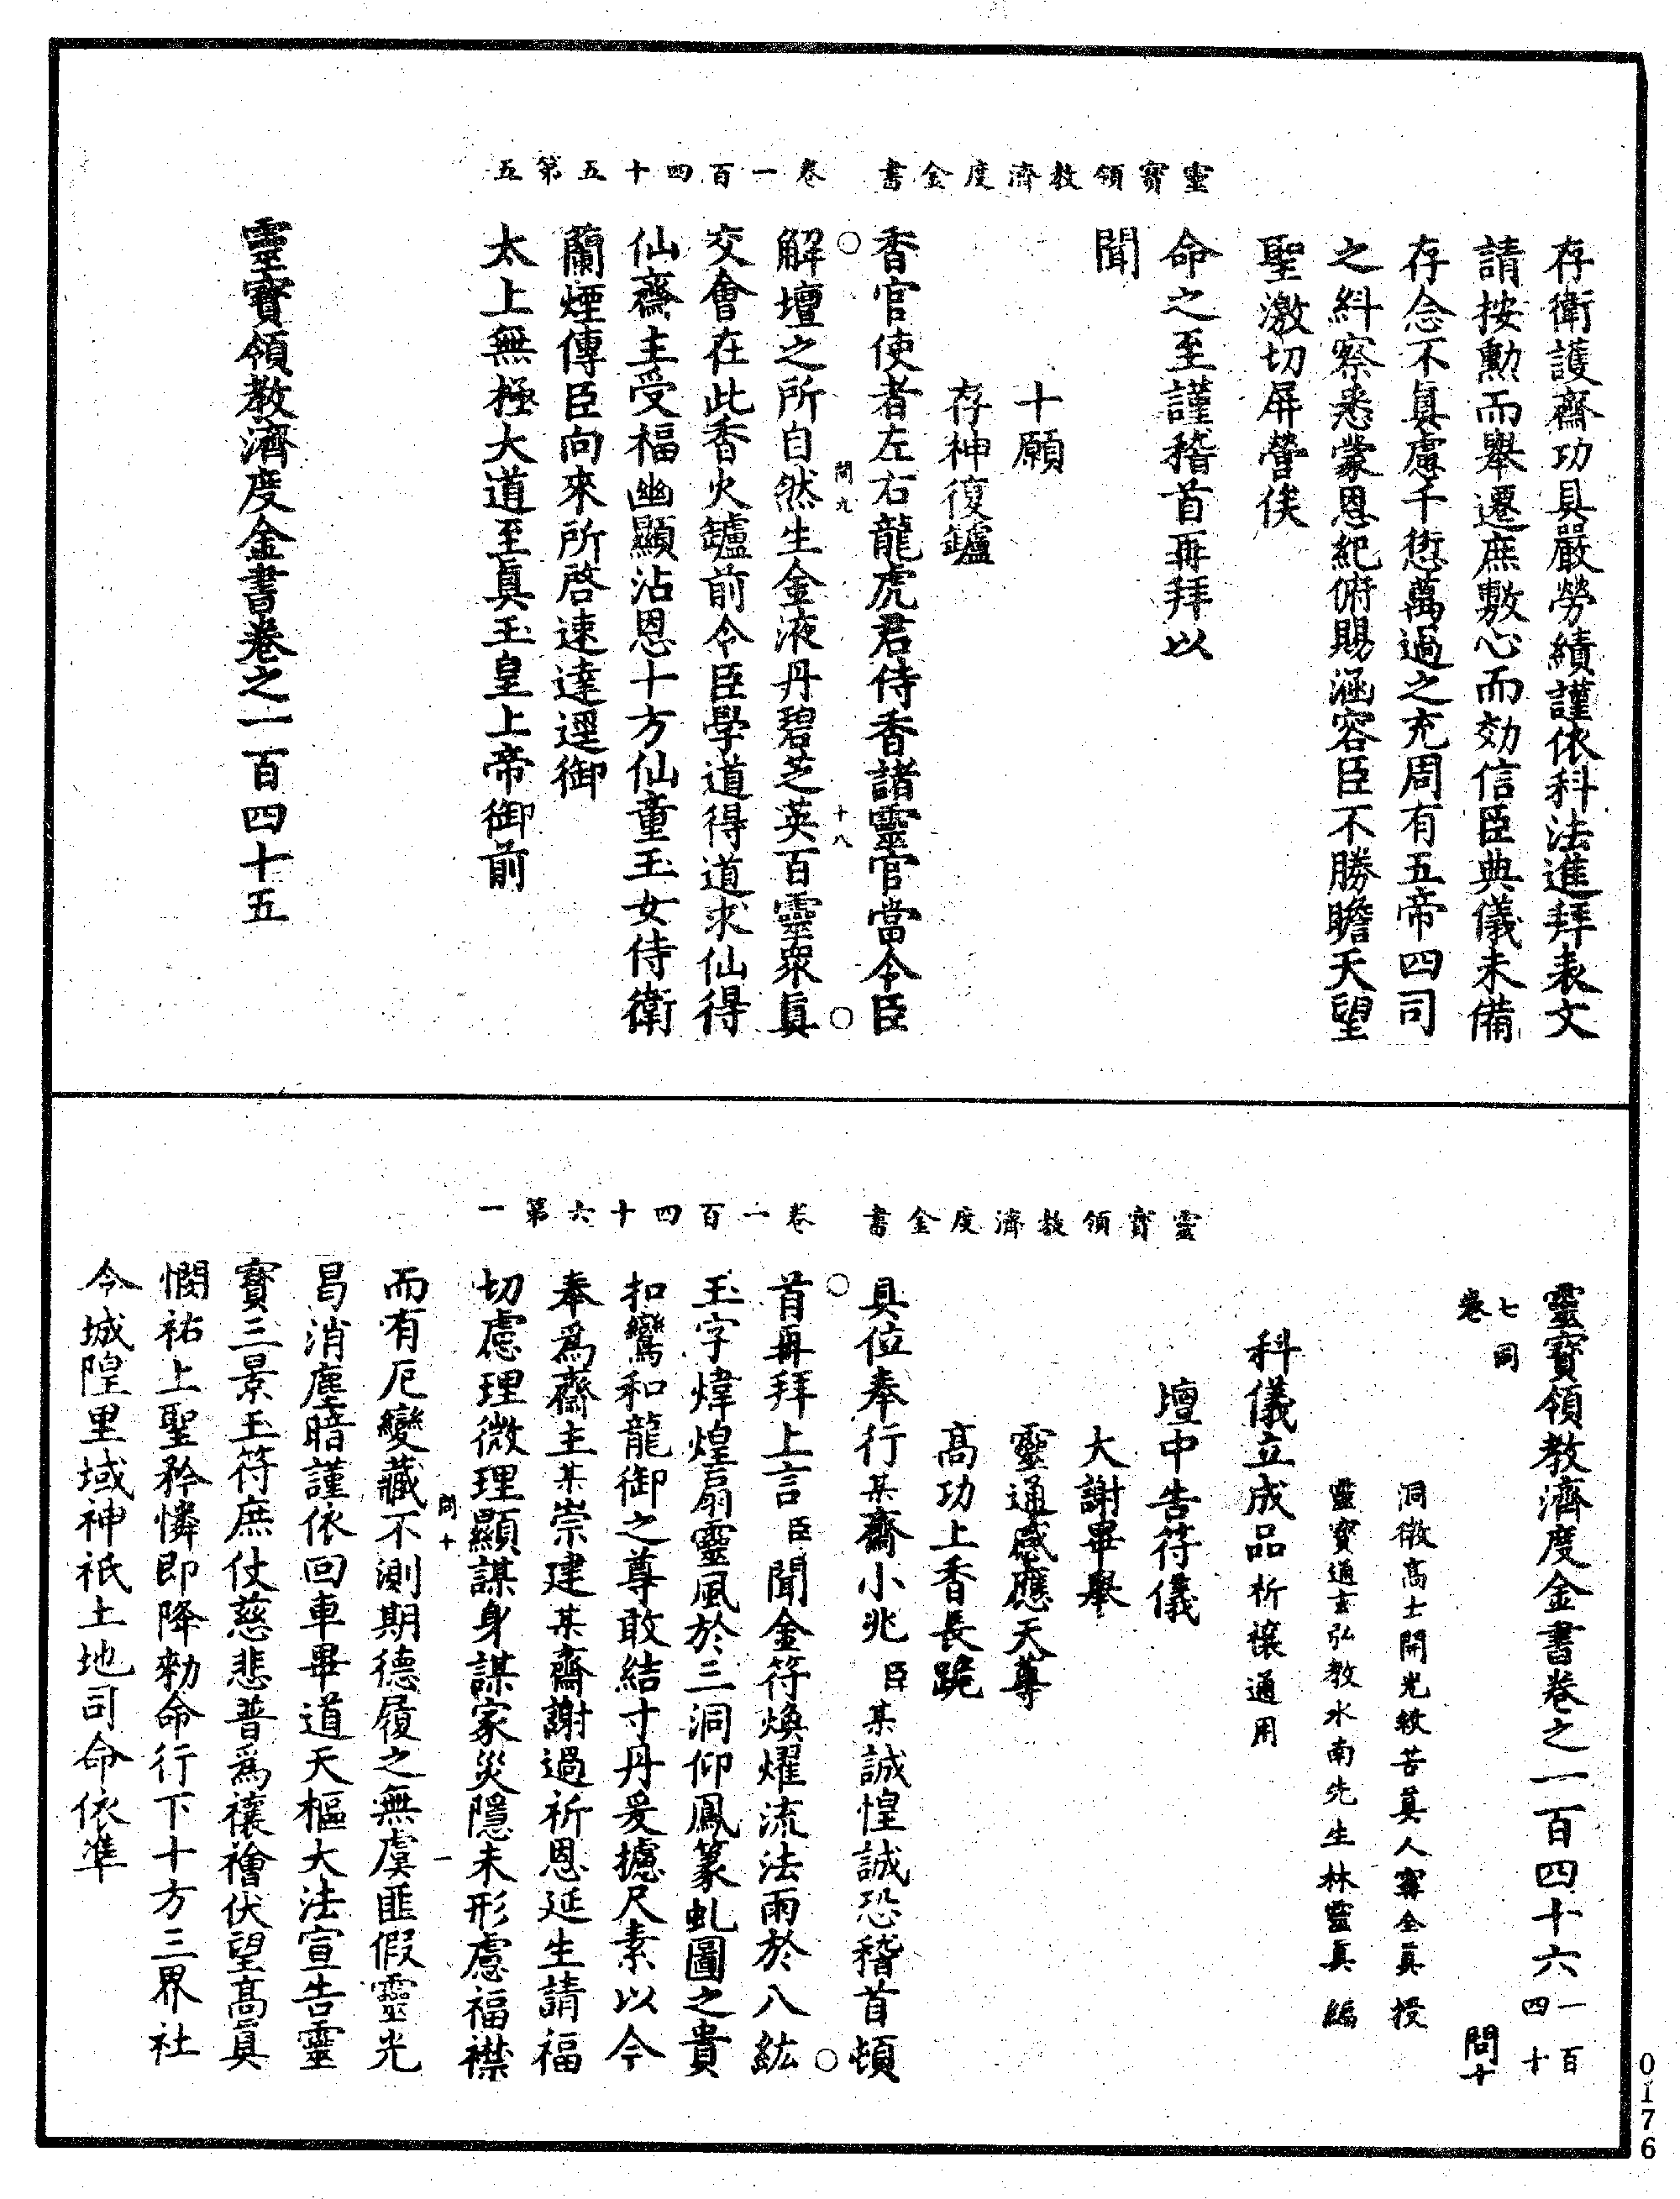 靈寶領教濟度金書　卷一百四十五第五
存衛護齋功具嚴勞績謹依科法進拜表文
請按勳而舉遷庶敷心而効信臣典儀未備
存念不眞慮千愆萬過之充周有五帝四司
之糾察悉蒙恩紀俯賜涵容臣不勝瞻天望
聖激切屏營俟
命之至謹稽首再拜以
聞
十願
存神復鑪
香官使者左右龍虎君侍香諸靈官當令臣
問九　十八
解壇之所自然生金液丹碧芝英百靈衆眞
交會在此香火鑪前令臣學道得道求仙得
仙齋主受福幽顯沾恩十方仙童玉女侍衛
蘭煙傳臣向來所啓速達逕御
太上無極大道至眞玉皇上帝御前
靈寶領教濟度金書卷之一百四十五
靈寶領教濟度金書　卷一百四十六第一
靈寶領教濟度金書卷之一百四十六　一百四十
七同卷　問十
洞微高士開光救苦眞人寗全眞　授
靈寶通玄弘教水南先生林靈眞　編
科儀立成品　祈禳通用
壇中告符儀
大謝畢舉
靈通感應天尊
高功上香長跪
具位奉行某齋小兆　臣某誠惶誠恐稽首頓
首再拜上言臣聞金符煥燿流法雨於八紘
玉字煒煌扇靈風於三洞仰鳳篆虬圖之貴
扣鸞和龍御之尊敢結寸丹爰攄尺素以今
奉爲齋主某崇建某齋謝過祈恩延生請福
切慮理微理顯謀身謀家災隱未形慮福襟
問十　一
而有厄變藏不測期德履之無虞匪假靈光
曷消塵暗謹依回車畢道天樞大法宣告靈
寶三景玉符庶仗慈悲普爲禳襘伏望高眞
憫祐上聖矜憐即降勑命行下十方三界社
令城隍里域神祇土地司命依準
0176